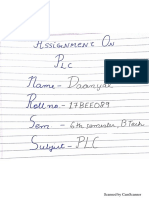 ASSIGNMENT ON
PLC
Name - Daanyal
Roll no. - 17BEE089
Sem - 6th semester, B.Tech
Subject - PLC
Scanned by CamScanner